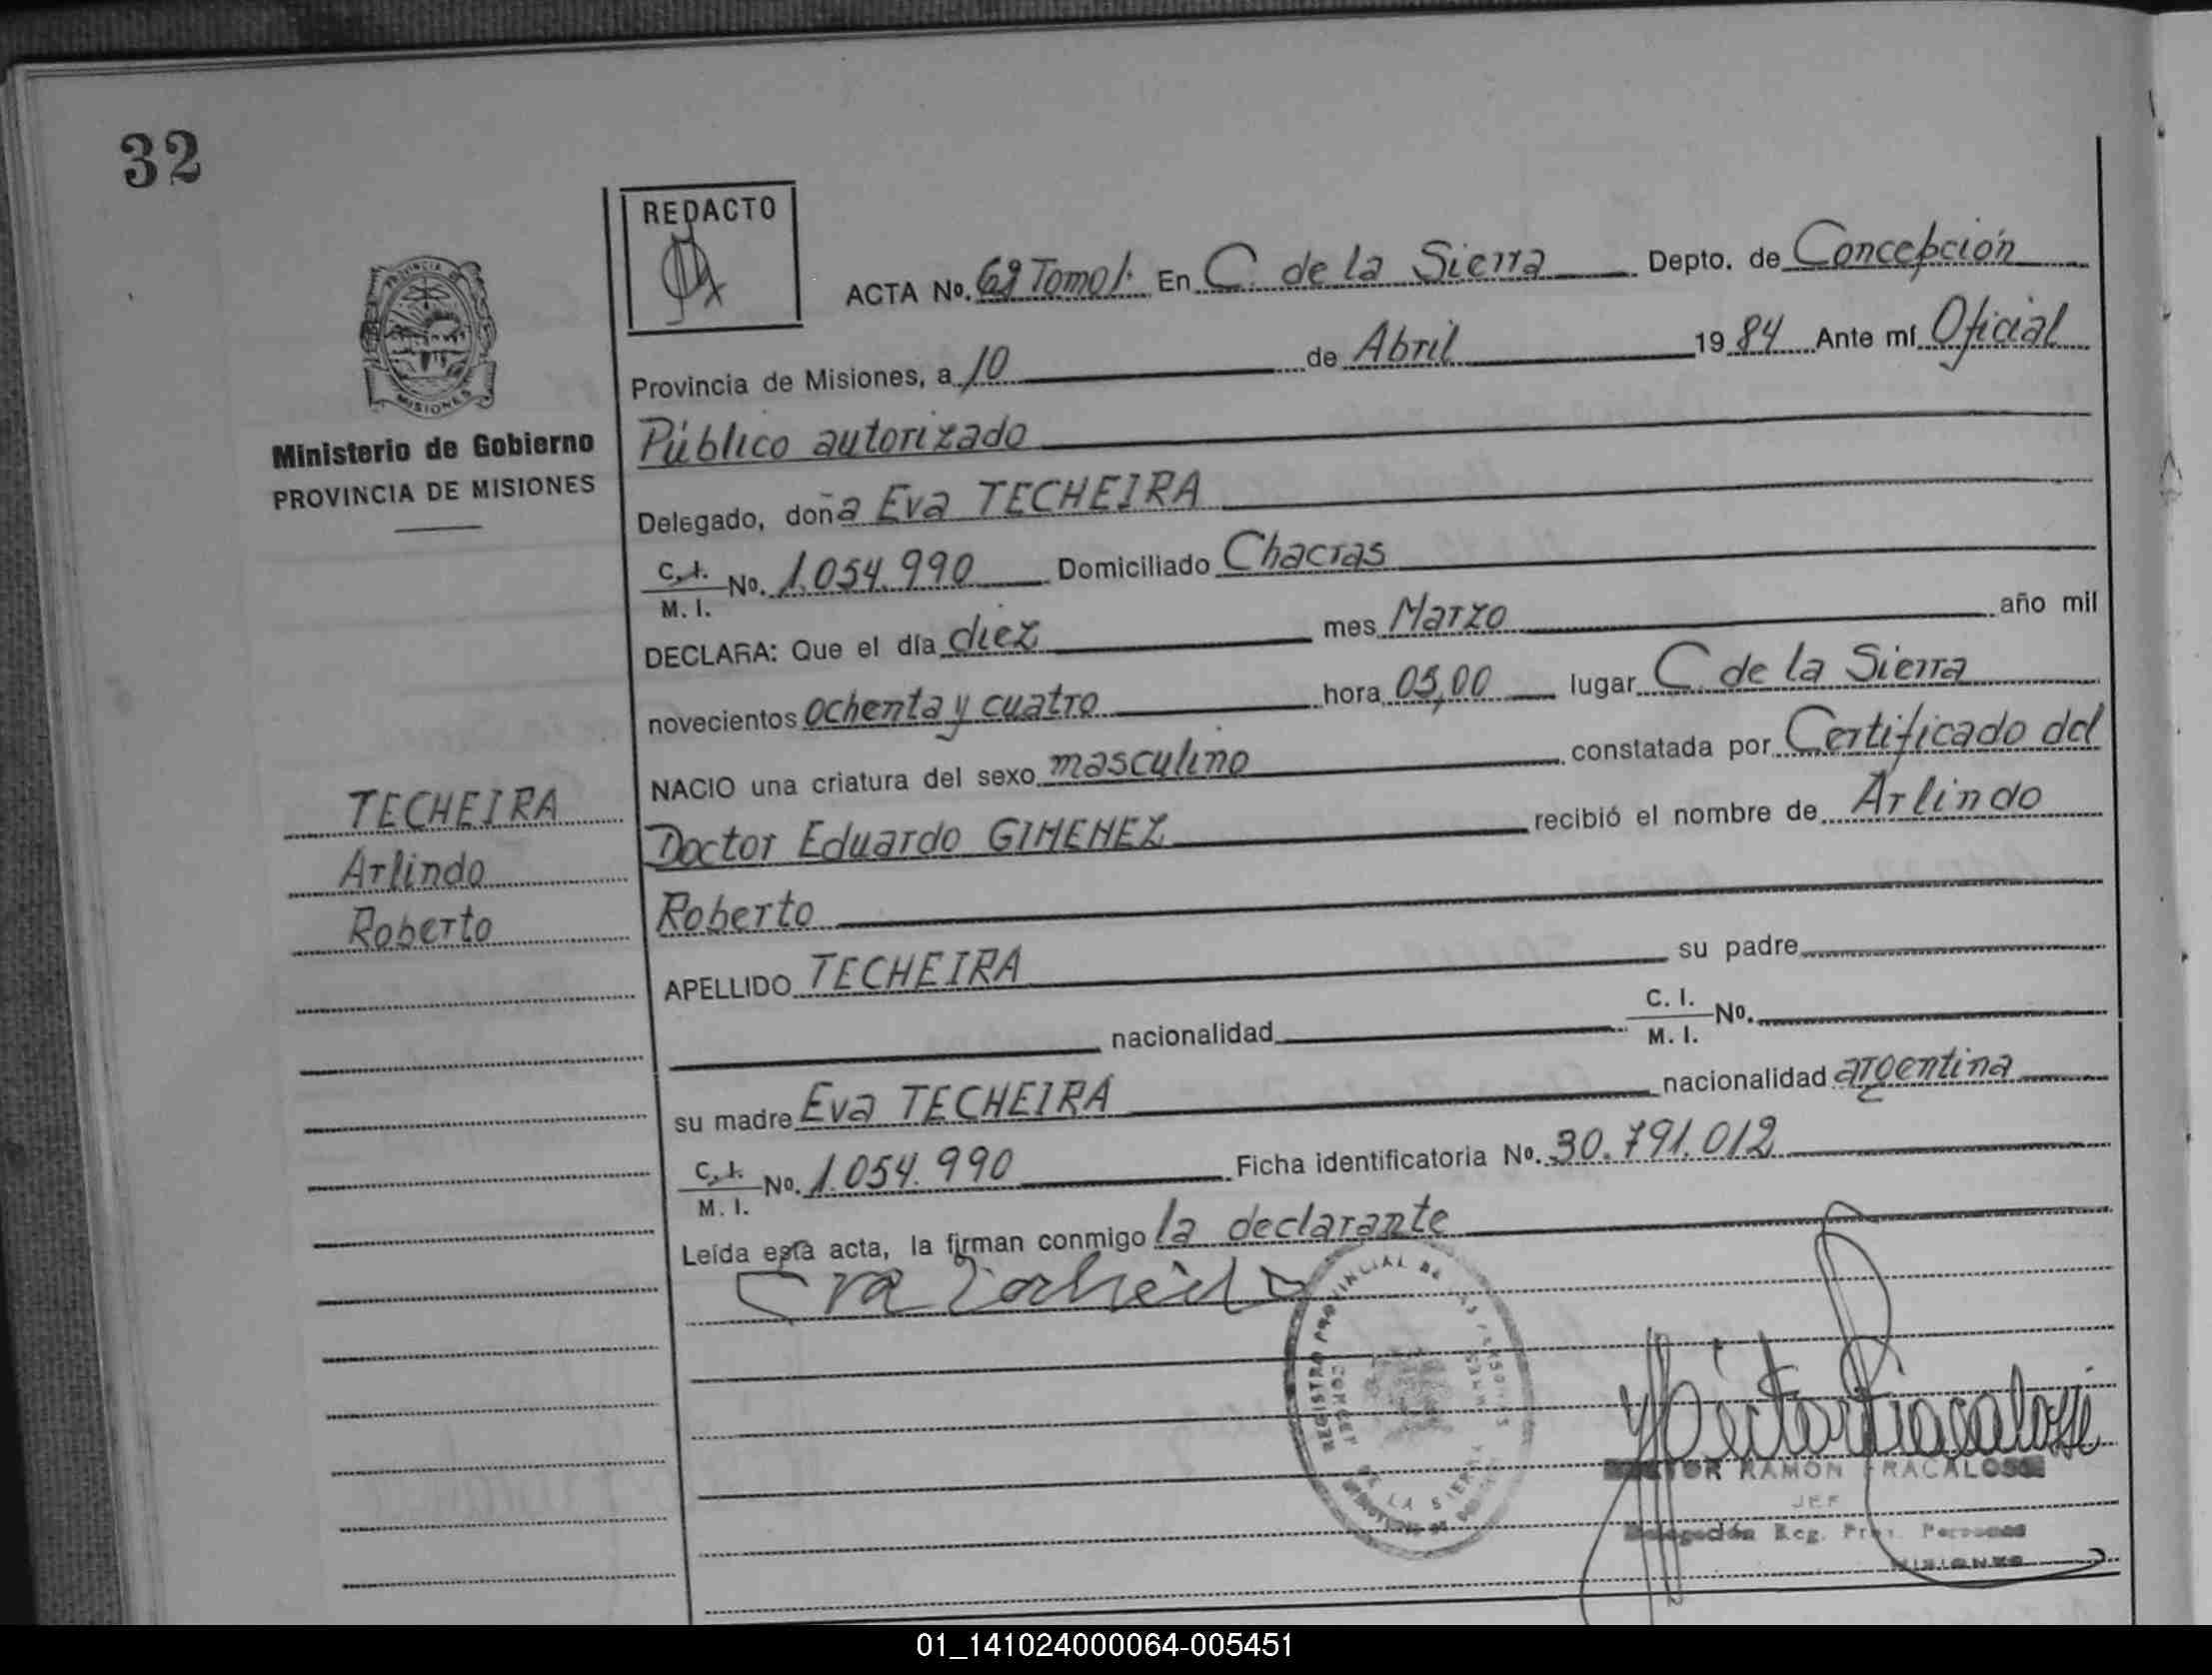 32
REDACTO
ACTA No. 69 Tomo 1. En C. de la Sierra Depto. de Concepción
Provincia de Misiones, a 10 de Abril 1984 Ante mí Oficial
Público autorizado
Delegado, doña Eva TECHEIRA
C. I. M. I. No. 1.054.990 Domiciliado Chacras
DECLARA: Que el día diez mes Marzo año mil
novecientos ochenta y cuatro hora 05,00 lugar C. de la Sierra
NACIO una criatura del sexo masculino constatada por Certificado del
Doctor Eduardo GIMENEZ recibió el nombre de Arlindo
Roberto
APELLIDO TECHEIRA su padre
nacionalidad C. I. M. I. No.
su madre Eva TECHEIRA nacionalidad argentina
C. I. M. I. No. 1.054.990 Ficha identificatoria No. 30.791.012
Leída esta acta, la firman conmigo la declarante
PROVINCIA DE
MISIONES
Ministerio de Gobierno
PROVINCIA DE MISIONES
TECHEIRA
Arlindo
Roberto
REGISTRO PROVINCIAL DE LAS PERSONAS
DE LA SIERRA
RAMON FRACALOSSI
JEF
Delegación Reg. Prov. Personas
MISIONES
01_141024000064-005451